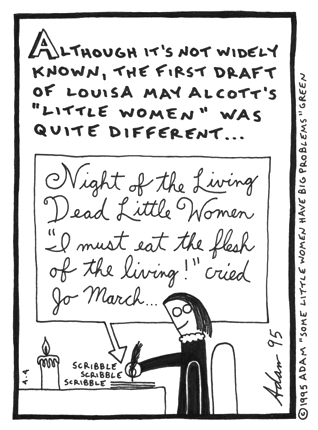 ALTHOUGH IT'S NOT WIDELY
KNOWN, THE FIRST DRAFT
OF LOUISA MAY ALCOTT'S
"LITTLE WOMEN" WAS
QUITE DIFFERENT...
Night of the Living
Dead Little Women
"I must eat the flesh
of the living!" cried
Jo March...
SCRIBBLE
SCRIBBLE
SCRIBBLE
4-4
Adam 95
©1995 ADAM "SOME LITTLE WOMEN HAVE BIG PROBLEMS" GREEN